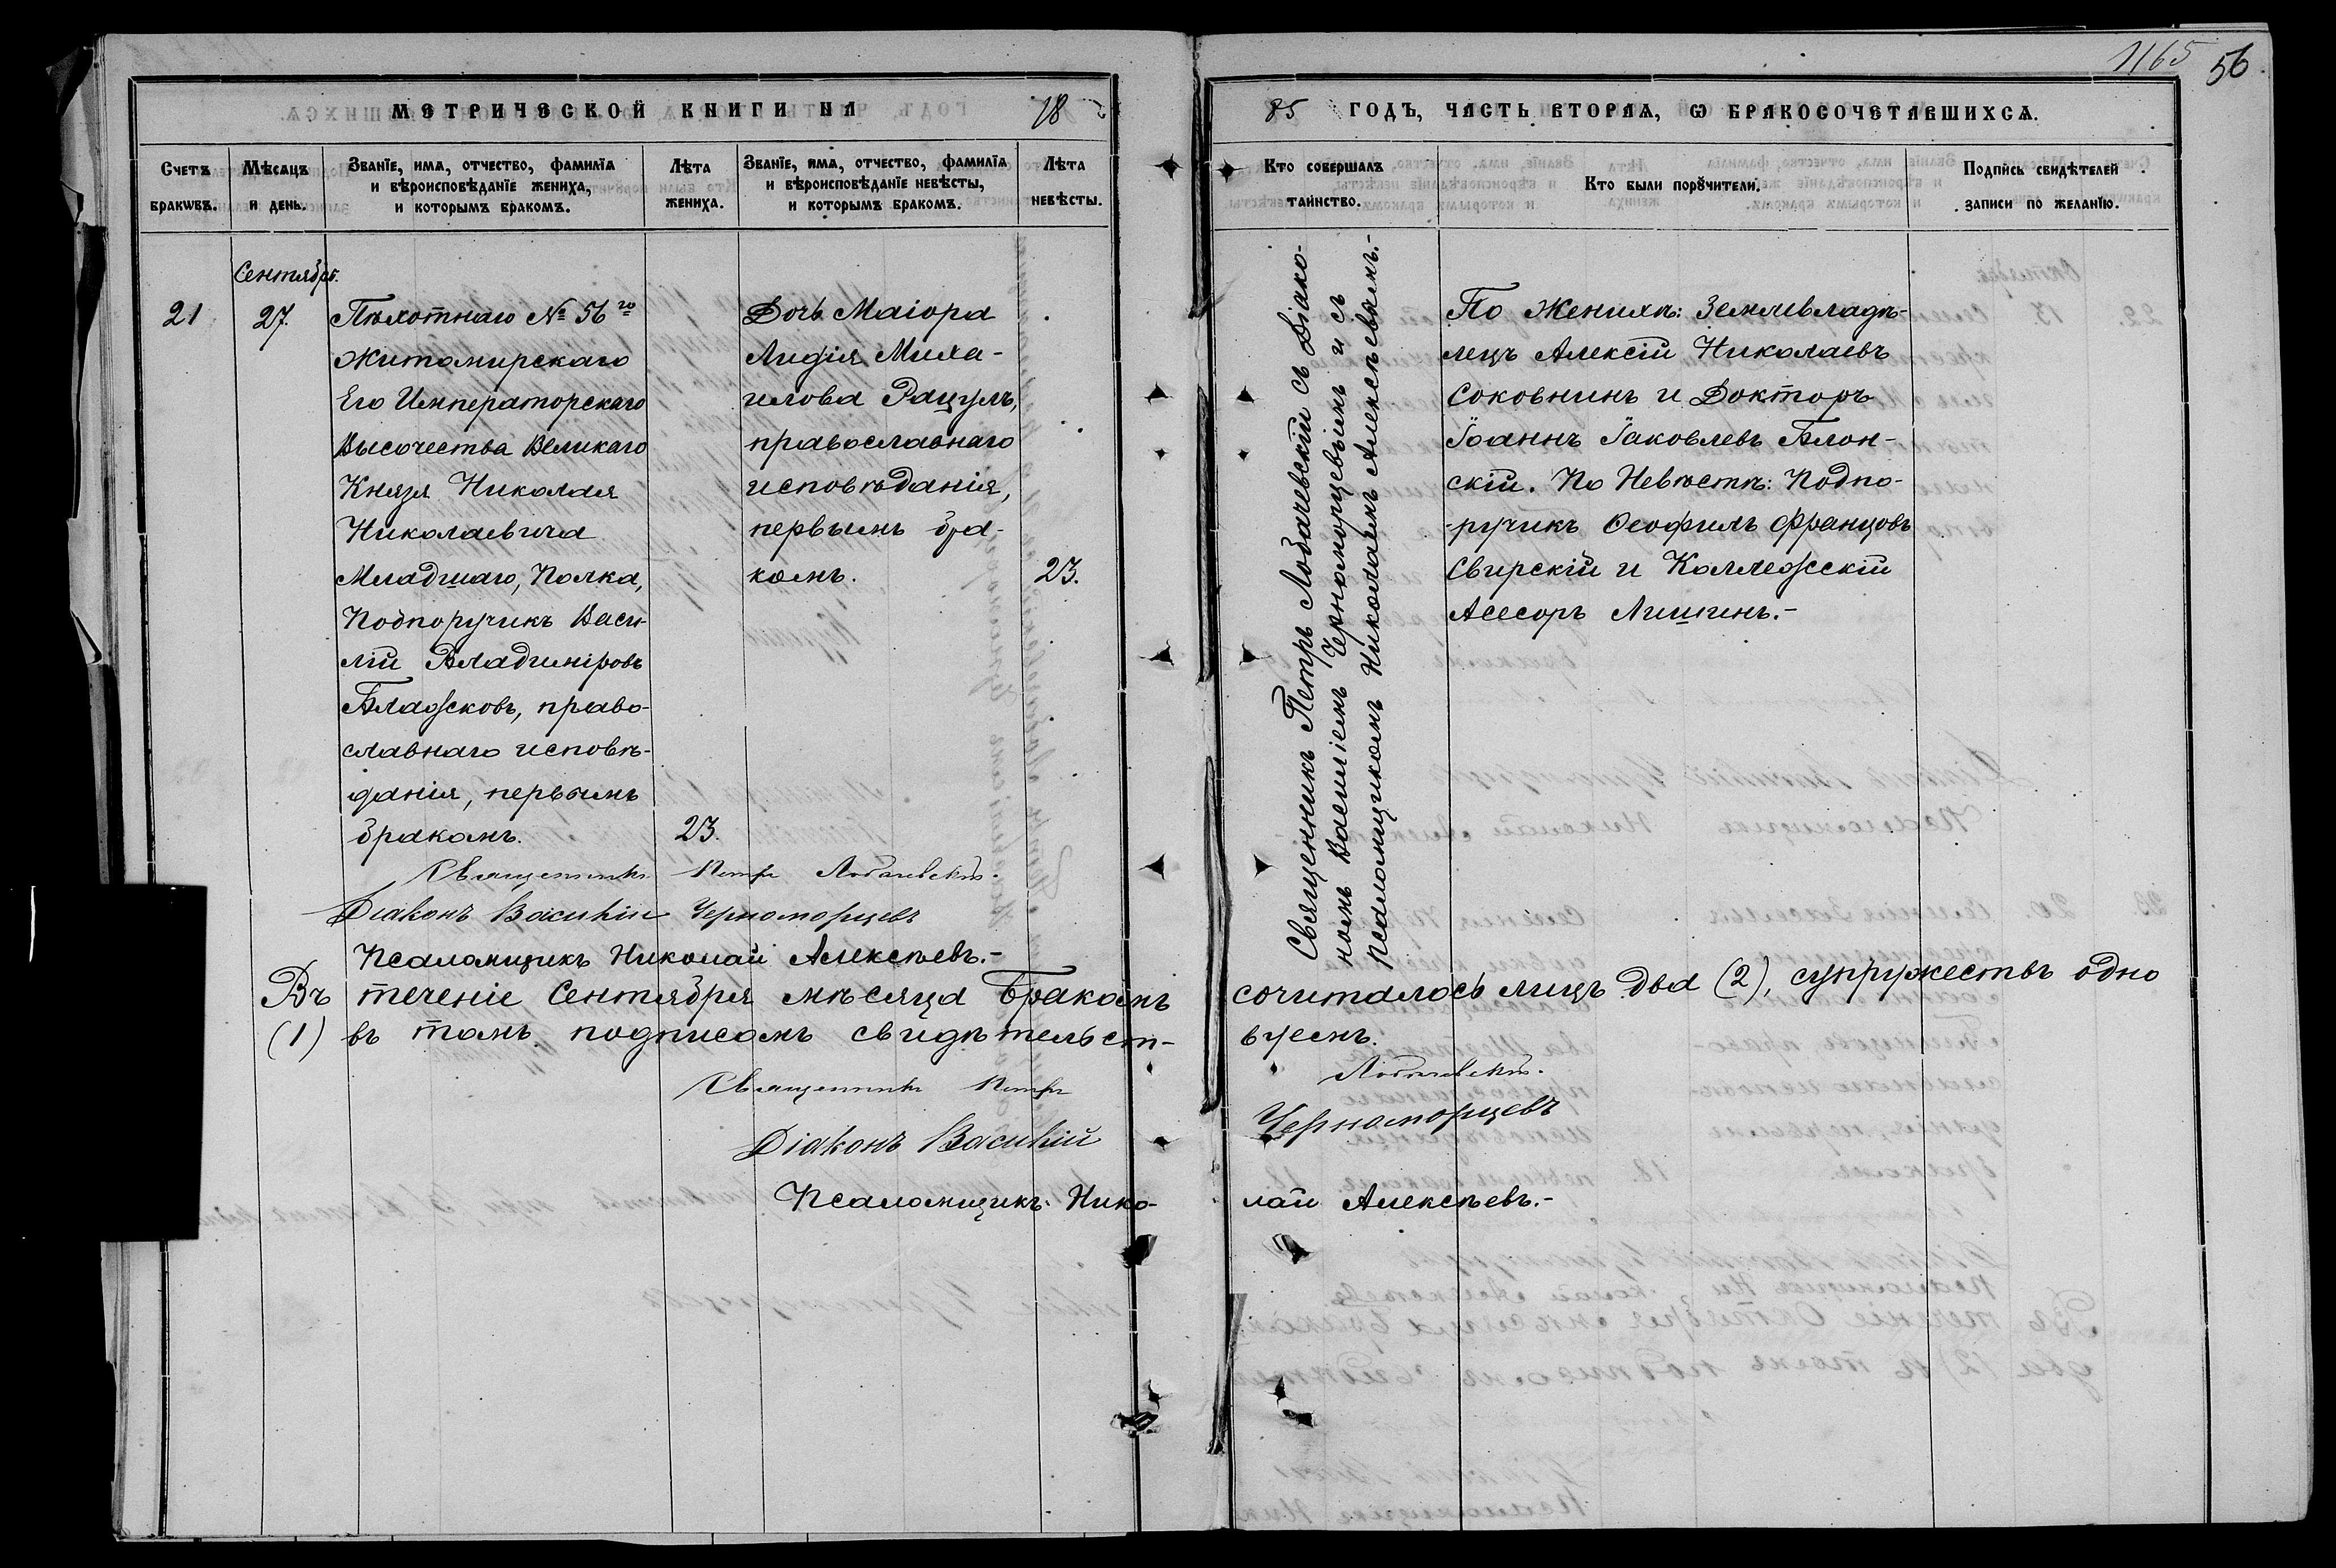 1165 56
МЕТРИЧЕСКОЙ КНИГИ НА 18
85 ГОДЪ, ЧАСТЬ ВТОРАЯ, Ѡ БРАКОСОЧЕТАВШИХСѦ.
Счетъ браквъ.
Мѣсѧцъ и день.
Званїе, имѧ, отчество, фамилїѧ
и вѣроисповѣданїе жениха,
и которымъ бракомъ.
Лѣта
жениха.
Званїе, имѧ, отчество, фамилїѧ
и вѣроисповѣданїе невѣсты,
и которымъ бракомъ.
Лѣта
невѣсты.
Кто совершалъ
таинство.
Кто были порꙋчители.
Подпись свидѣтелей
записи по желанїю.
Сентябрь.
21
27.
Пѣхотнаго № 56го
Житомирскаго
Его Императорскаго
Высочества Великаго
Князя Николая
Николаевича
Младшаго, Полка,
Подпоручикъ Васи-
лій Владиміровъ
Блажковъ, право-
славнаго исповѣ-
данія, первымъ
бракомъ.
23.
Дочь Маіора
Лидія Миха-
илова Рацулъ,
православнаго
исповѣданія,
первымъ бра-
комъ.
23.
Священникъ Петръ Лобачевскій съ Діако-
номъ Василіемъ Черноморцевымъ и съ
Псаломщикомъ Николаемъ Алексѣевымъ.-
По Женихѣ: Землевладѣ-
лецъ Алексій Николаевъ
Соковнинъ и Докторъ
Іоаннъ Іаковлевъ Блон-
скій. По Невѣстѣ: Подпо-
ручикъ Ѳеофилъ Францовъ
Свирскій и Коллежскій
Асесоръ Лишинъ.-
Священникъ Петръ Лобачевскій.
Діаконъ Василій Черноморцевъ
Псаломщикъ Николай Алексѣевъ.-
Въ теченіе Сентября мѣсяца Бракомъ сочиталось лицъ два (2), супружествъ одно
(1) въ томъ подписомъ свидѣтельст- вуемъ.
Священникъ Петръ Лобачевскій.
Діаконъ Василій Черноморцевъ
Псаломщикъ Нико- лай Алексѣевъ.-